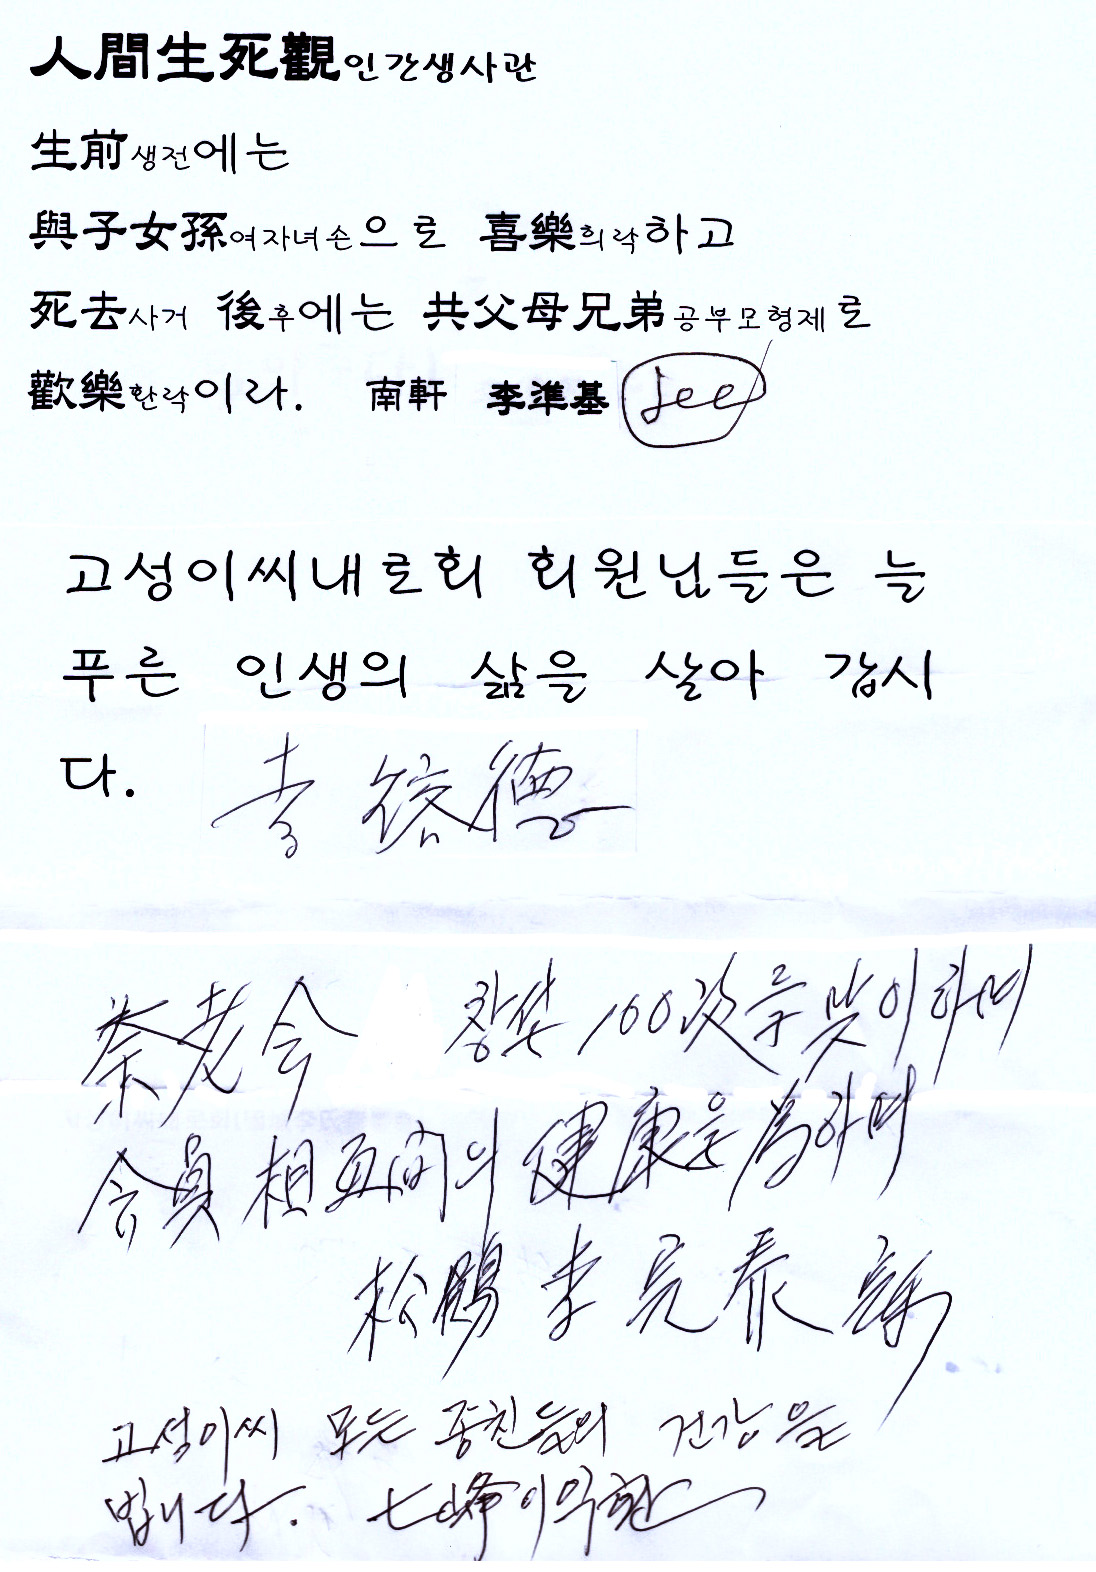 人間生死觀인간생사관
生前생전에는
與子女孫여자녀손으로 喜樂희락하고
死去사거 後후에는 共父母兄弟공부모형제로
歡樂환락이라. 南軒 李準基 Lee
고성이씨내로회 회원님들은 늘
푸른 인생의 삶을 살아 갑시
다. 李 德
老会 100次를 맞이하며
会員 相互间의 健康을 하며
松 李 泰
고성이씨 모든 종친들의 건강을
빕니다. 七峰 이